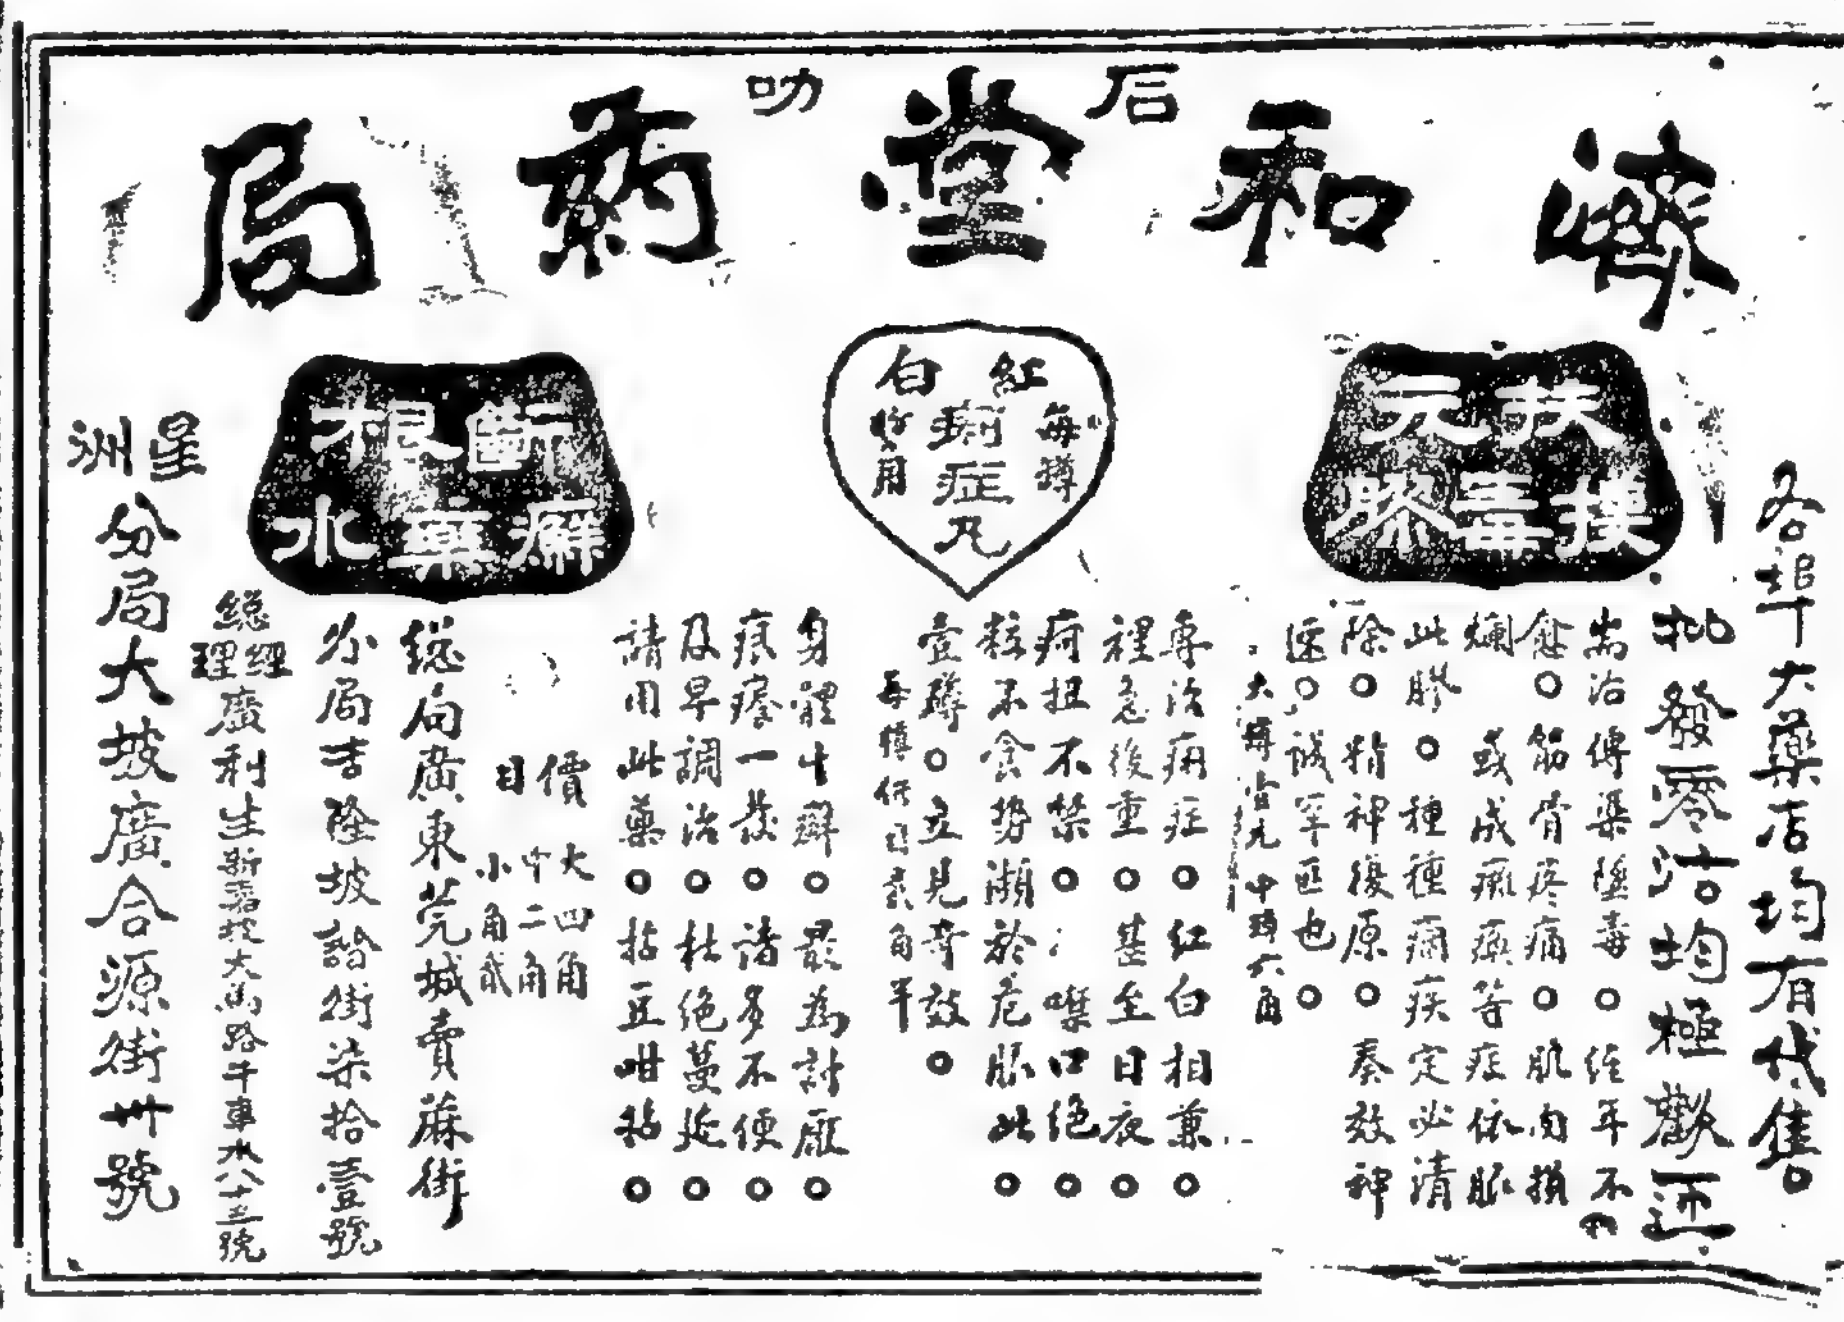 石叻
濟和堂药局
各埠大藥店均有代售
批發零沽均極歡迎
扶元
撲毒膠
耑治傳染壅毒○經年不
愈○筋骨疼痛○肌肉損
爛 或成瘋癲等症依賬
此膠○種種痼疾定必清
除○精神復原○奏效神
速○誠罕匹也○
大罇壹元中罇六角
紅白
痢症丸
每罇
專治痢症○紅白相兼○
裡急後重○甚至日夜○
疴扭不禁○噤口絕○
粒不食勢瀕於危賬此○
壹罇○立見奇效○
斷根
癬藥水
身體生癬○最為討厭○
痕癢一發○諸多不便○
及早調治○杜絕蔓延○
請用此藥○搽立咁搽○
價目
大四角
中二角
小角貳
總局廣東莞城賣蔴街
分局吉隆坡諧街柒拾壹號
總經理
廣利生新嘉坡大馬路牛車水八十五號
星洲
分局大坡廣合源街卅號